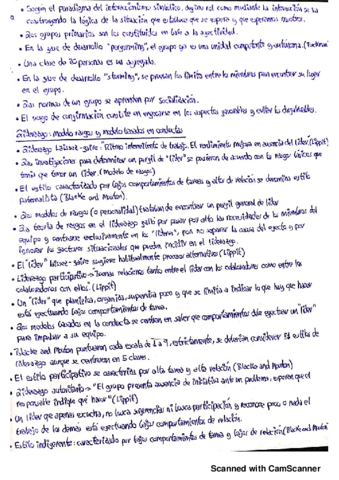 • Según el paradigma del interaccionismo simbólico, mediante la interacción se va
construyendo la lógica de la situación que establece que se espera y que esperamos nosotros.
• Los grupos primarios son los constituidos en base a la afectividad.
• En la fase de desarrollo "performing", el grupo ya es una unidad competente y autónoma. (Tuckman)
• Una clase de 20 personas es un agregado.
• En la fase de desarrollo "storming", se prueban los límites entre los miembros para encontrar su lugar
en el grupo.
• Las normas de un grupo se aprenden por socialización.
• El sesgo de confirmación consiste en enfocarse en los aspectos favorables y evitar lo desfavorable.
Liderazgo: modelo rasgos y modelo basados en conductas
• Liderazgo laissez-faire: Ritmo intermitente de trabajo. El rendimiento mejora en ausencia del líder (Lippit)
• Las investigaciones para determinar un perfil de "líder" se pusieron de acuerdo con los rasgos básicos que
tenía que tener un líder. (Modelo de rasgos)
• El estilo caracterizado por bajos comportamientos de tarea y altos de relación se denomina estilo
paternalista (Blake and Mouton).
• Los modelos de rasgos (o personalidad) trataban de encontrar un perfil general de líder
• La teoría de rasgos en el liderazgo falló por pasar por alto las necesidades de los miembros del
equipo y centrarse exclusivamente en los "líderes", por no separar la causa del efecto y por
ignorar los factores situacionales que pueden incidir en el liderazgo.
• El "líder" laissez-faire sugiere habitualmente procesos alternativos (Lippit)
• Liderazgo participativo → buenas relaciones tanto entre el líder con los colaboradores como entre los
colaboradores con ellos. (Lippit)
• Un "líder" que planifica, organiza, supervisa poco y que se limita a indicar lo que hay que hacer
está ejecutando bajos comportamientos de tarea.
• Los modelos basados en la conducta se centran en saber que comportamientos debe ejecutar un "líder"
para impulsar a su equipo.
• Blake and Mouton puntuaron cada escala de 1 a 9, estrictamente, se deberían considerar 81 estilos de
liderazgo aunque se centraron en 5 claves.
• El estilo participativo se caracteriza por alta tarea y alta relación (Blake and Mouton)
• Liderazgo autoritario → "El grupo presenta ausencia de iniciativa ante un problema, esperan que el
responsable indique qué hacer" (Lippit)
• Un líder que apenas escucha, no busca sugerencias ni busca participación, y reconoce poco o nada el
trabajo de los demás está ejecutando bajos comportamientos de relación.
• Estilo indiferente: caracterizado por bajos comportamientos de tarea y bajos de relación (Blake and Mouton)
Scanned with CamScanner